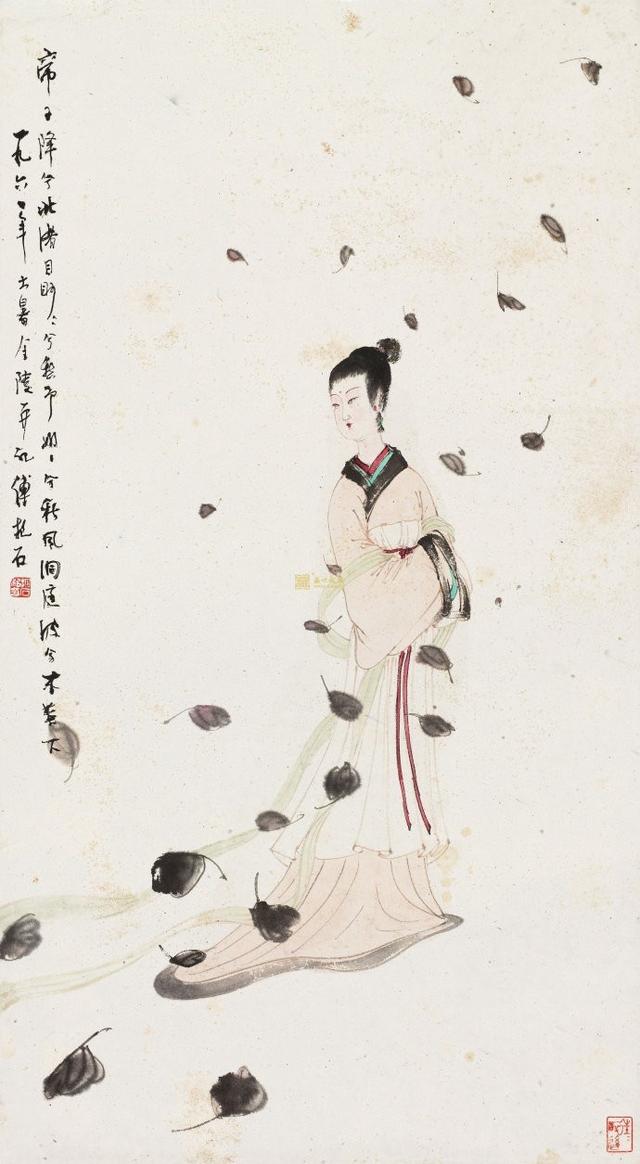 帝子降兮北渚目眇々兮愁予嫋々兮秋風洞庭波兮木葉下
一九六一年大暑金陵并記傅抱石